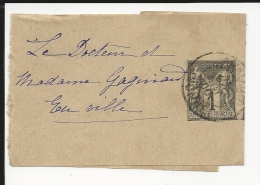 Le Docteur et
Madame Gagniard
En ville
1